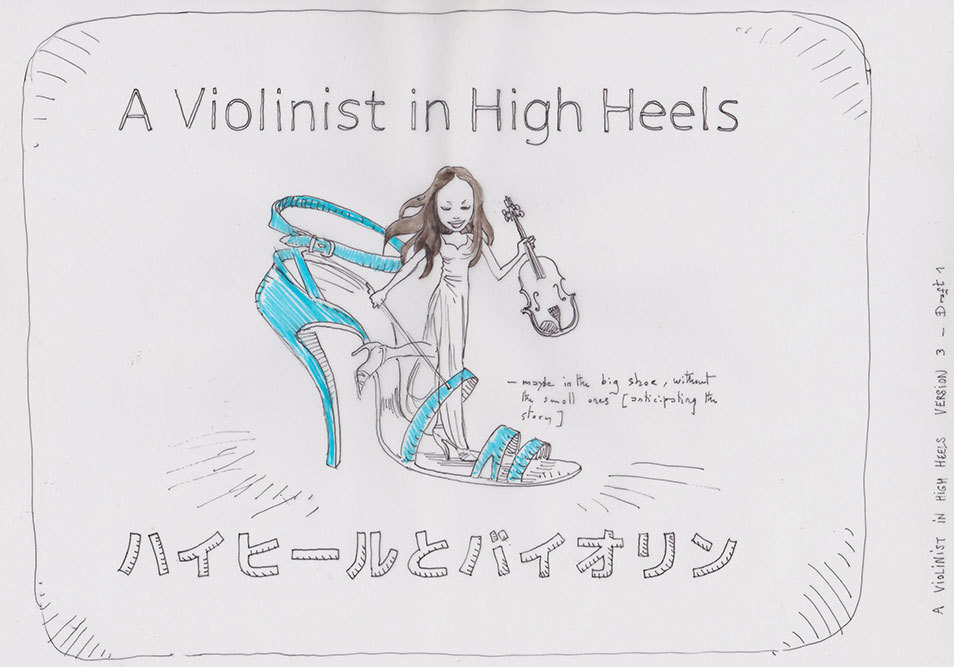 A Violinist in High Heels
– maybe in the big shoe, without
the small ones~ [anticipating the
story]
ハイヒールとバイオリン
A VIOLINIST IN HIGH HEELS VERSION 3 – Draft 1